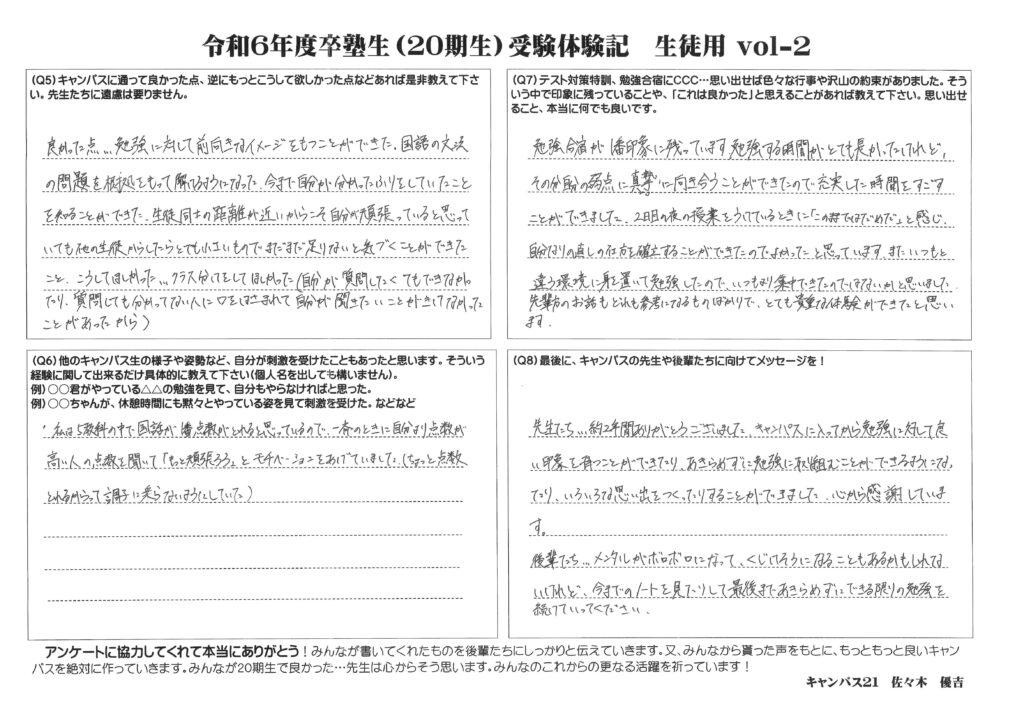 令和6年度卒塾生（20期生）受験体験記　生徒用 vol-2
(Q5)キャンパスに通って良かった点、逆にもっとこうして欲しかった点などあれば是非教えて下さ
い。先生たちに遠慮は要りません。
良かった点…勉強に対して前向きなイメージをもつことができた。国語の文法
の問題を根拠をもって解けるようになった。今まで自分が分かったふりをしていたこと
を知ることができた。生徒同士の距離が近いからこそ自分が頑張っていると思って
いても他の生徒からしたらとても小さいものでまだまだ足りないと気づくことができた
こと。こうしてほしかった…クラス分けをしてほしかった（自分が質問したくてもできなかっ
たり、質問しても分かってない人に口をはさまれて自分が聞きたいことがきけなかった
ことがあったから）
(Q6)他のキャンパス生の様子や姿勢など、自分が刺激を受けたこともあったと思います。そういう
経験に関して出来るだけ具体的に教えて下さい(個人名を出しても構いません)。
例）○○君がやっている△△の勉強を見て、自分もやらなければと思った。
例）○○ちゃんが、休憩時間にも黙々とやっている姿を見て刺激を受けた。などなど
私は5教科の中で国語が1番点数がとれると思っているので、一斉のときに自分より点数が
高い人の点数を聞いて「もっと頑張ろう」とモチベーションをあげていました。（ちょっと点数
とれるからって調子に乗らないようにしていた）
(Q7)テスト対策特訓、勉強合宿にCCC…思い出せば色々な行事や沢山の約束がありました。そう
いう中で印象に残っていることや、「これは良かった」と思えることがあれば教えて下さい。思い出せ
ること、本当に何でも良いです。
勉強合宿が1番印象に残っています。勉強する時間がとても長かったけれど、
その分自分の弱点に真摯に向き合うことができたので充実した時間をすごす
ことができました。2日目の夜の授業をうけているときに「この解き方ではだめだ」と感じ、
自分なりの直しの仕方を確立することができたのでよかったと思っています。また、いつもと
違う環境に身を置いて勉強したので、いつもより集中できたのではないかと思いました。
先輩方のお話もどれも参考になるものばかりで、とても貴重な体験ができたと思い
ます。
(Q8)最後に、キャンパスの先生や後輩たちに向けてメッセージを！
先生たち…約2年間ありがとうございました。キャンパスに入ってから勉強に対して良
い印象を持つことができたり、あきらめずに勉強に取り組むことができるようになっ
たり、いろいろな思い出をつくったりすることができました。心から感謝していま
す。
後輩たち…メンタルがボロボロになって、くじけそうになることもあるかもしれな
いけれど、今までのノートを見たりして最後まであきらめずにできる限りの勉強を
続けていってください。
アンケートに協力してくれて本当にありがとう！みんなが書いてくれたものを後輩たちにしっかりと伝えていきます。又、みんなから貰った声をもとに、もっともっと良いキャン
パスを絶対に作っていきます。みんなが20期生で良かった…先生は心からそう思います。みんなのこれからの更なる活躍を祈っています！
キャンパス21　佐々木　優吉